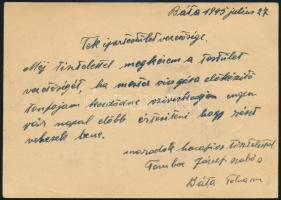 Báta 1945 július 27.
Tek ipartestület vezetősége.
Mély tisztelettel megkérem a testület
vezetőségét, ha mester vizsgára előkészítő
tanfolyam kezdődne szíveskedjen engem
pár nappal előbb értesíteni hogy részt
vehessek benne.
maradok hazafias tisztelettel
József szabó
Báta